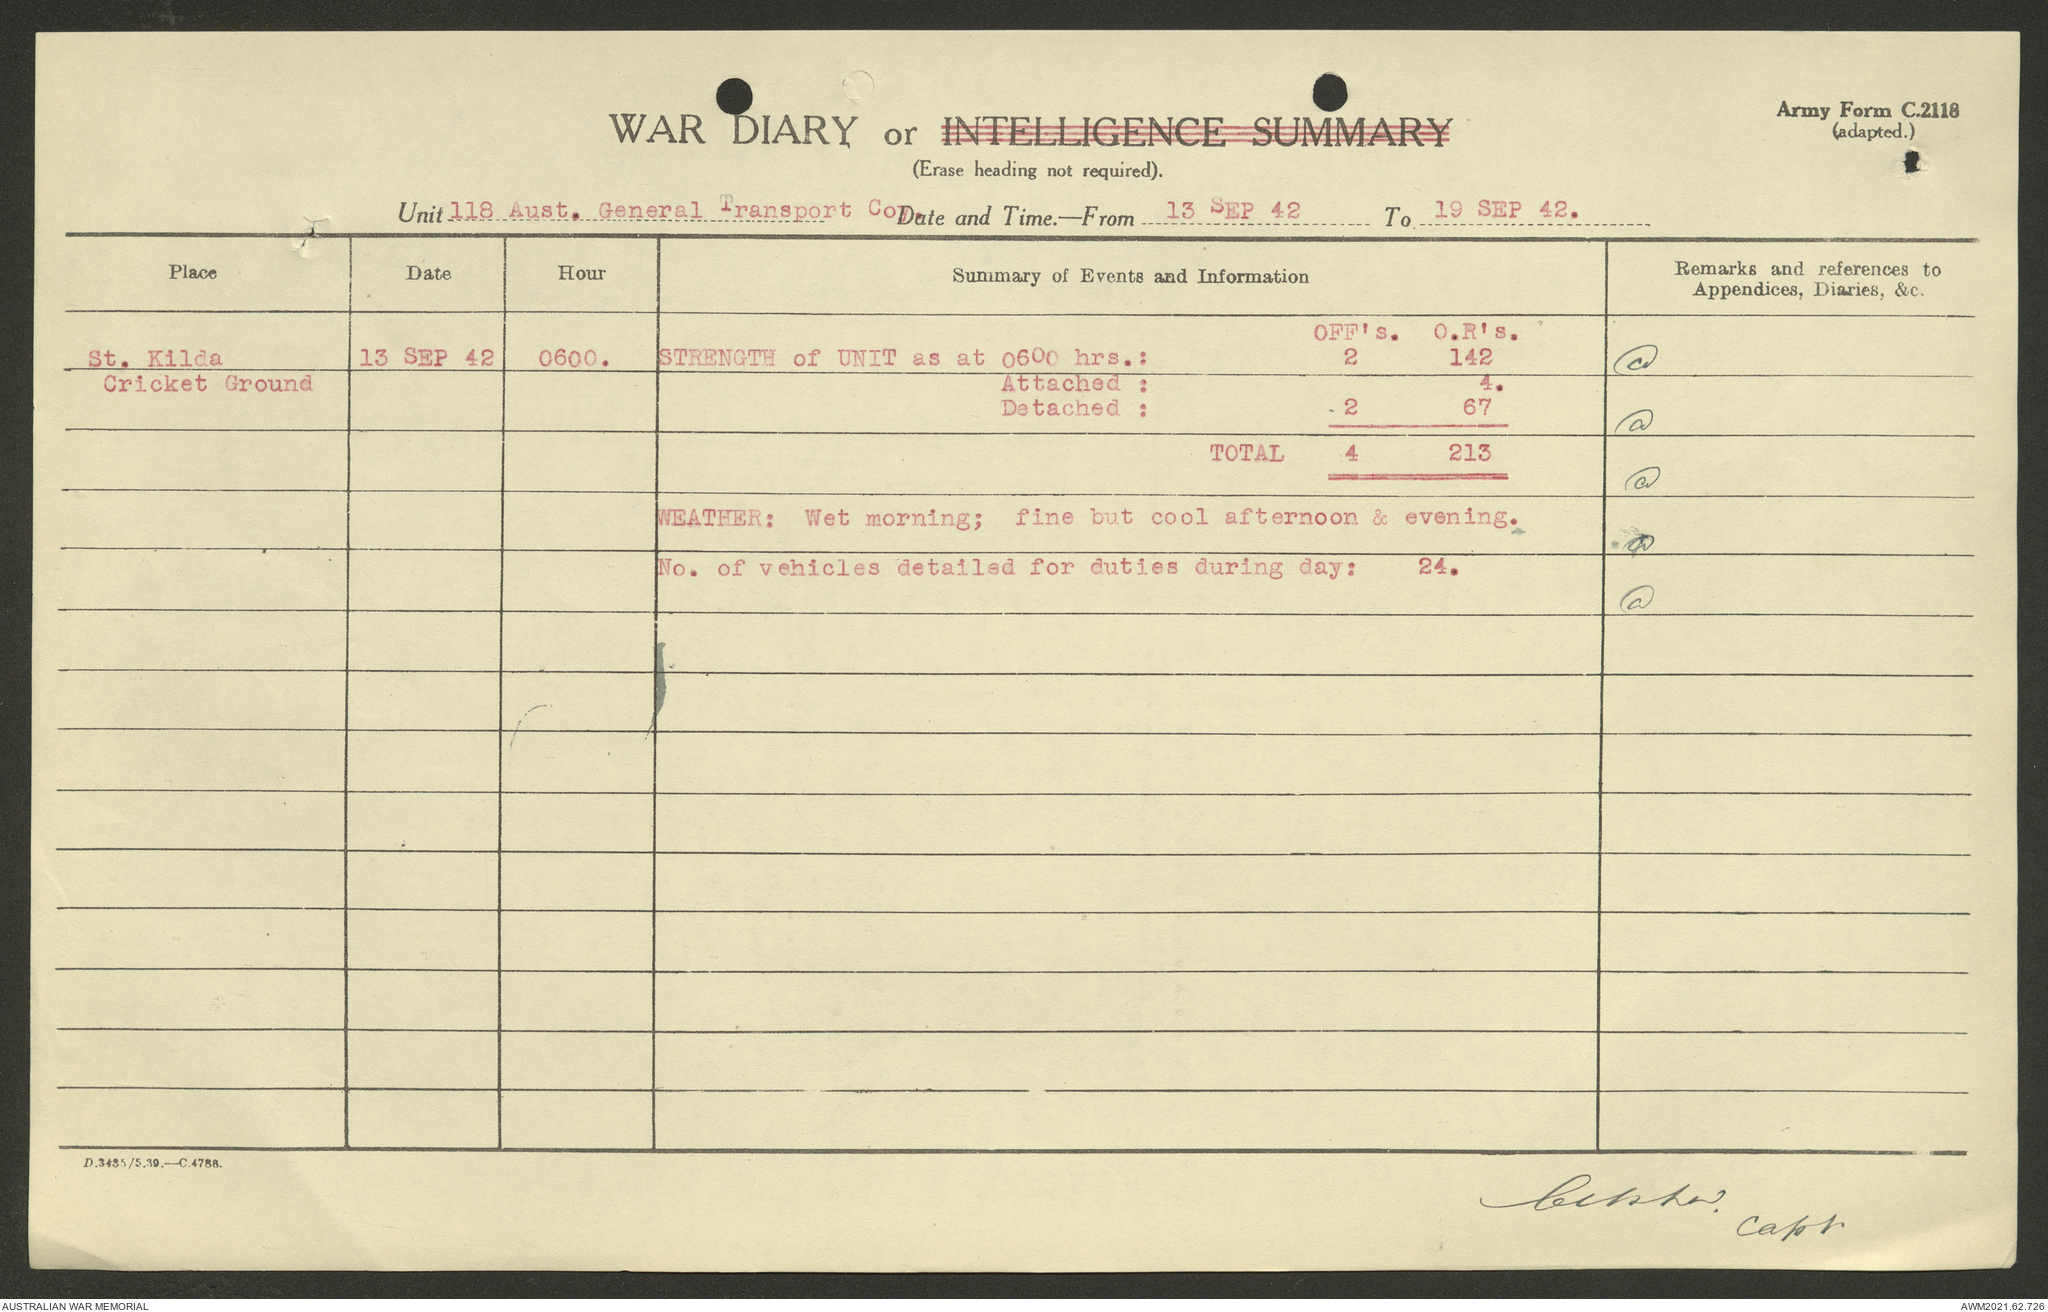 Army Form C.2118
(adapted.)
WAR DIARY or INTELLIGENCE SUMMARY
(Erase heading not required).
Unit 118 Aust. General Transport Coy. Date and Time.—From 13 SEP 42 To 19 SEP 42.
Place Date Hour Summary of Events and Information Remarks and references to
Appendices, Diaries, &c.
OFF's. O.R's.
St. Kilda 13 SEP 42 0600. STRENGTH of UNIT as at 0600 hrs.: 2 142
Cricket Ground Attached : 4.
Detached : 2 67
TOTAL 4 213
WEATHER: Wet morning; fine but cool afternoon & evening.
No. of vehicles detailed for duties during day: 24.
D.3485/5.39.—C.4788.
Capt
AUSTRALIAN WAR MEMORIAL AWM2021.62.726